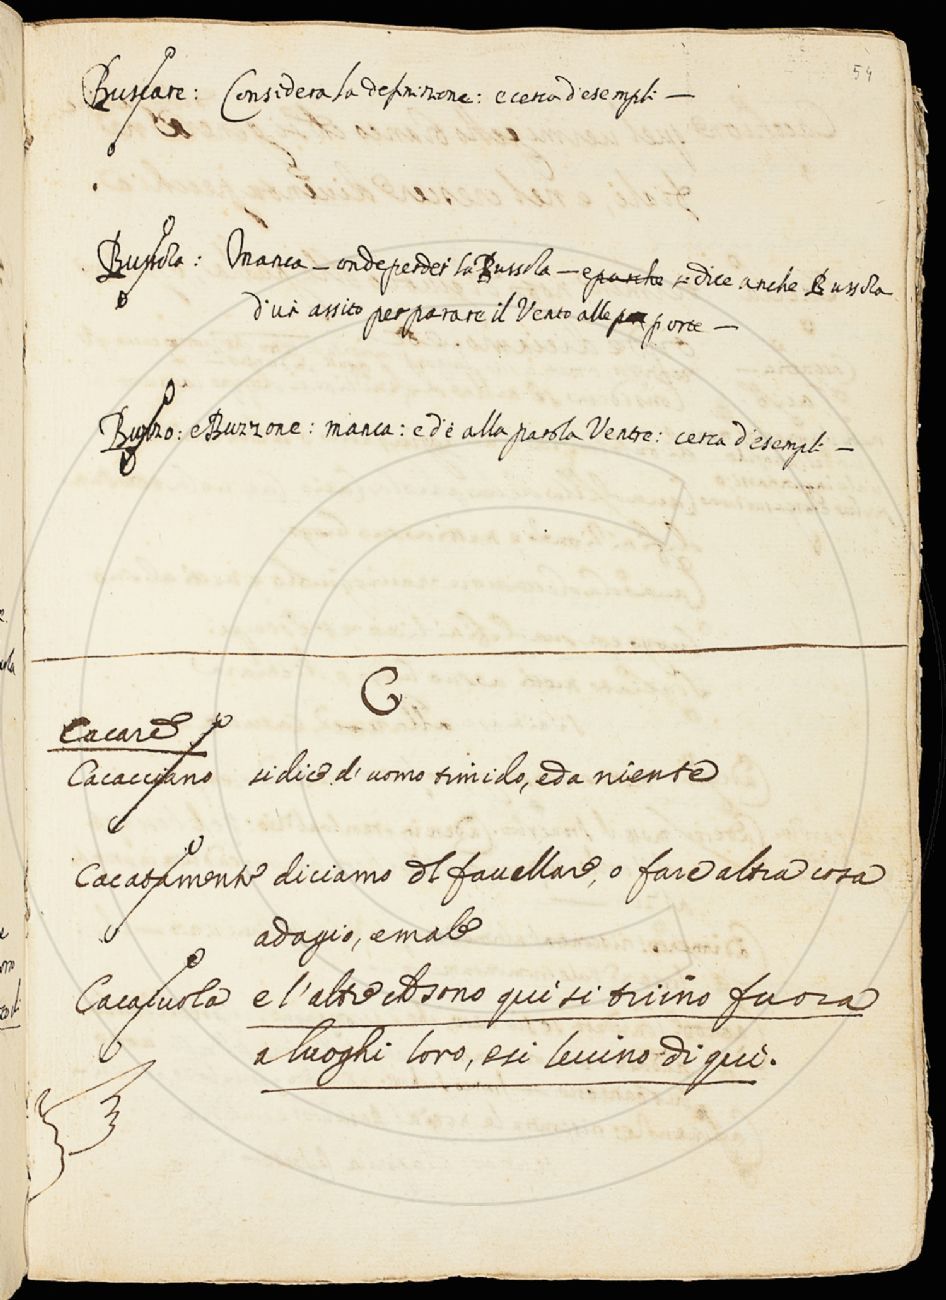 54
Buscare: Considera la definizione: e cerca d'esempli —
Bussola: Manca — onde perder la Bussola — e perche si dice anche Bussola
d'un assito per parare il Vento alle porte —
Buzzo: e Buzzone: manca: ed è alla parola Ventre: cerca d'esempli —
C
Cacare
Cacacciano si dice d'uomo timido, e da niente
Cacatamente diciamo del favellare, o fare altra cosa
adagio, e male
Cacaiuola e l'altre ch sono quì si tririno fuora
a luoghi loro, e si levino di quì.